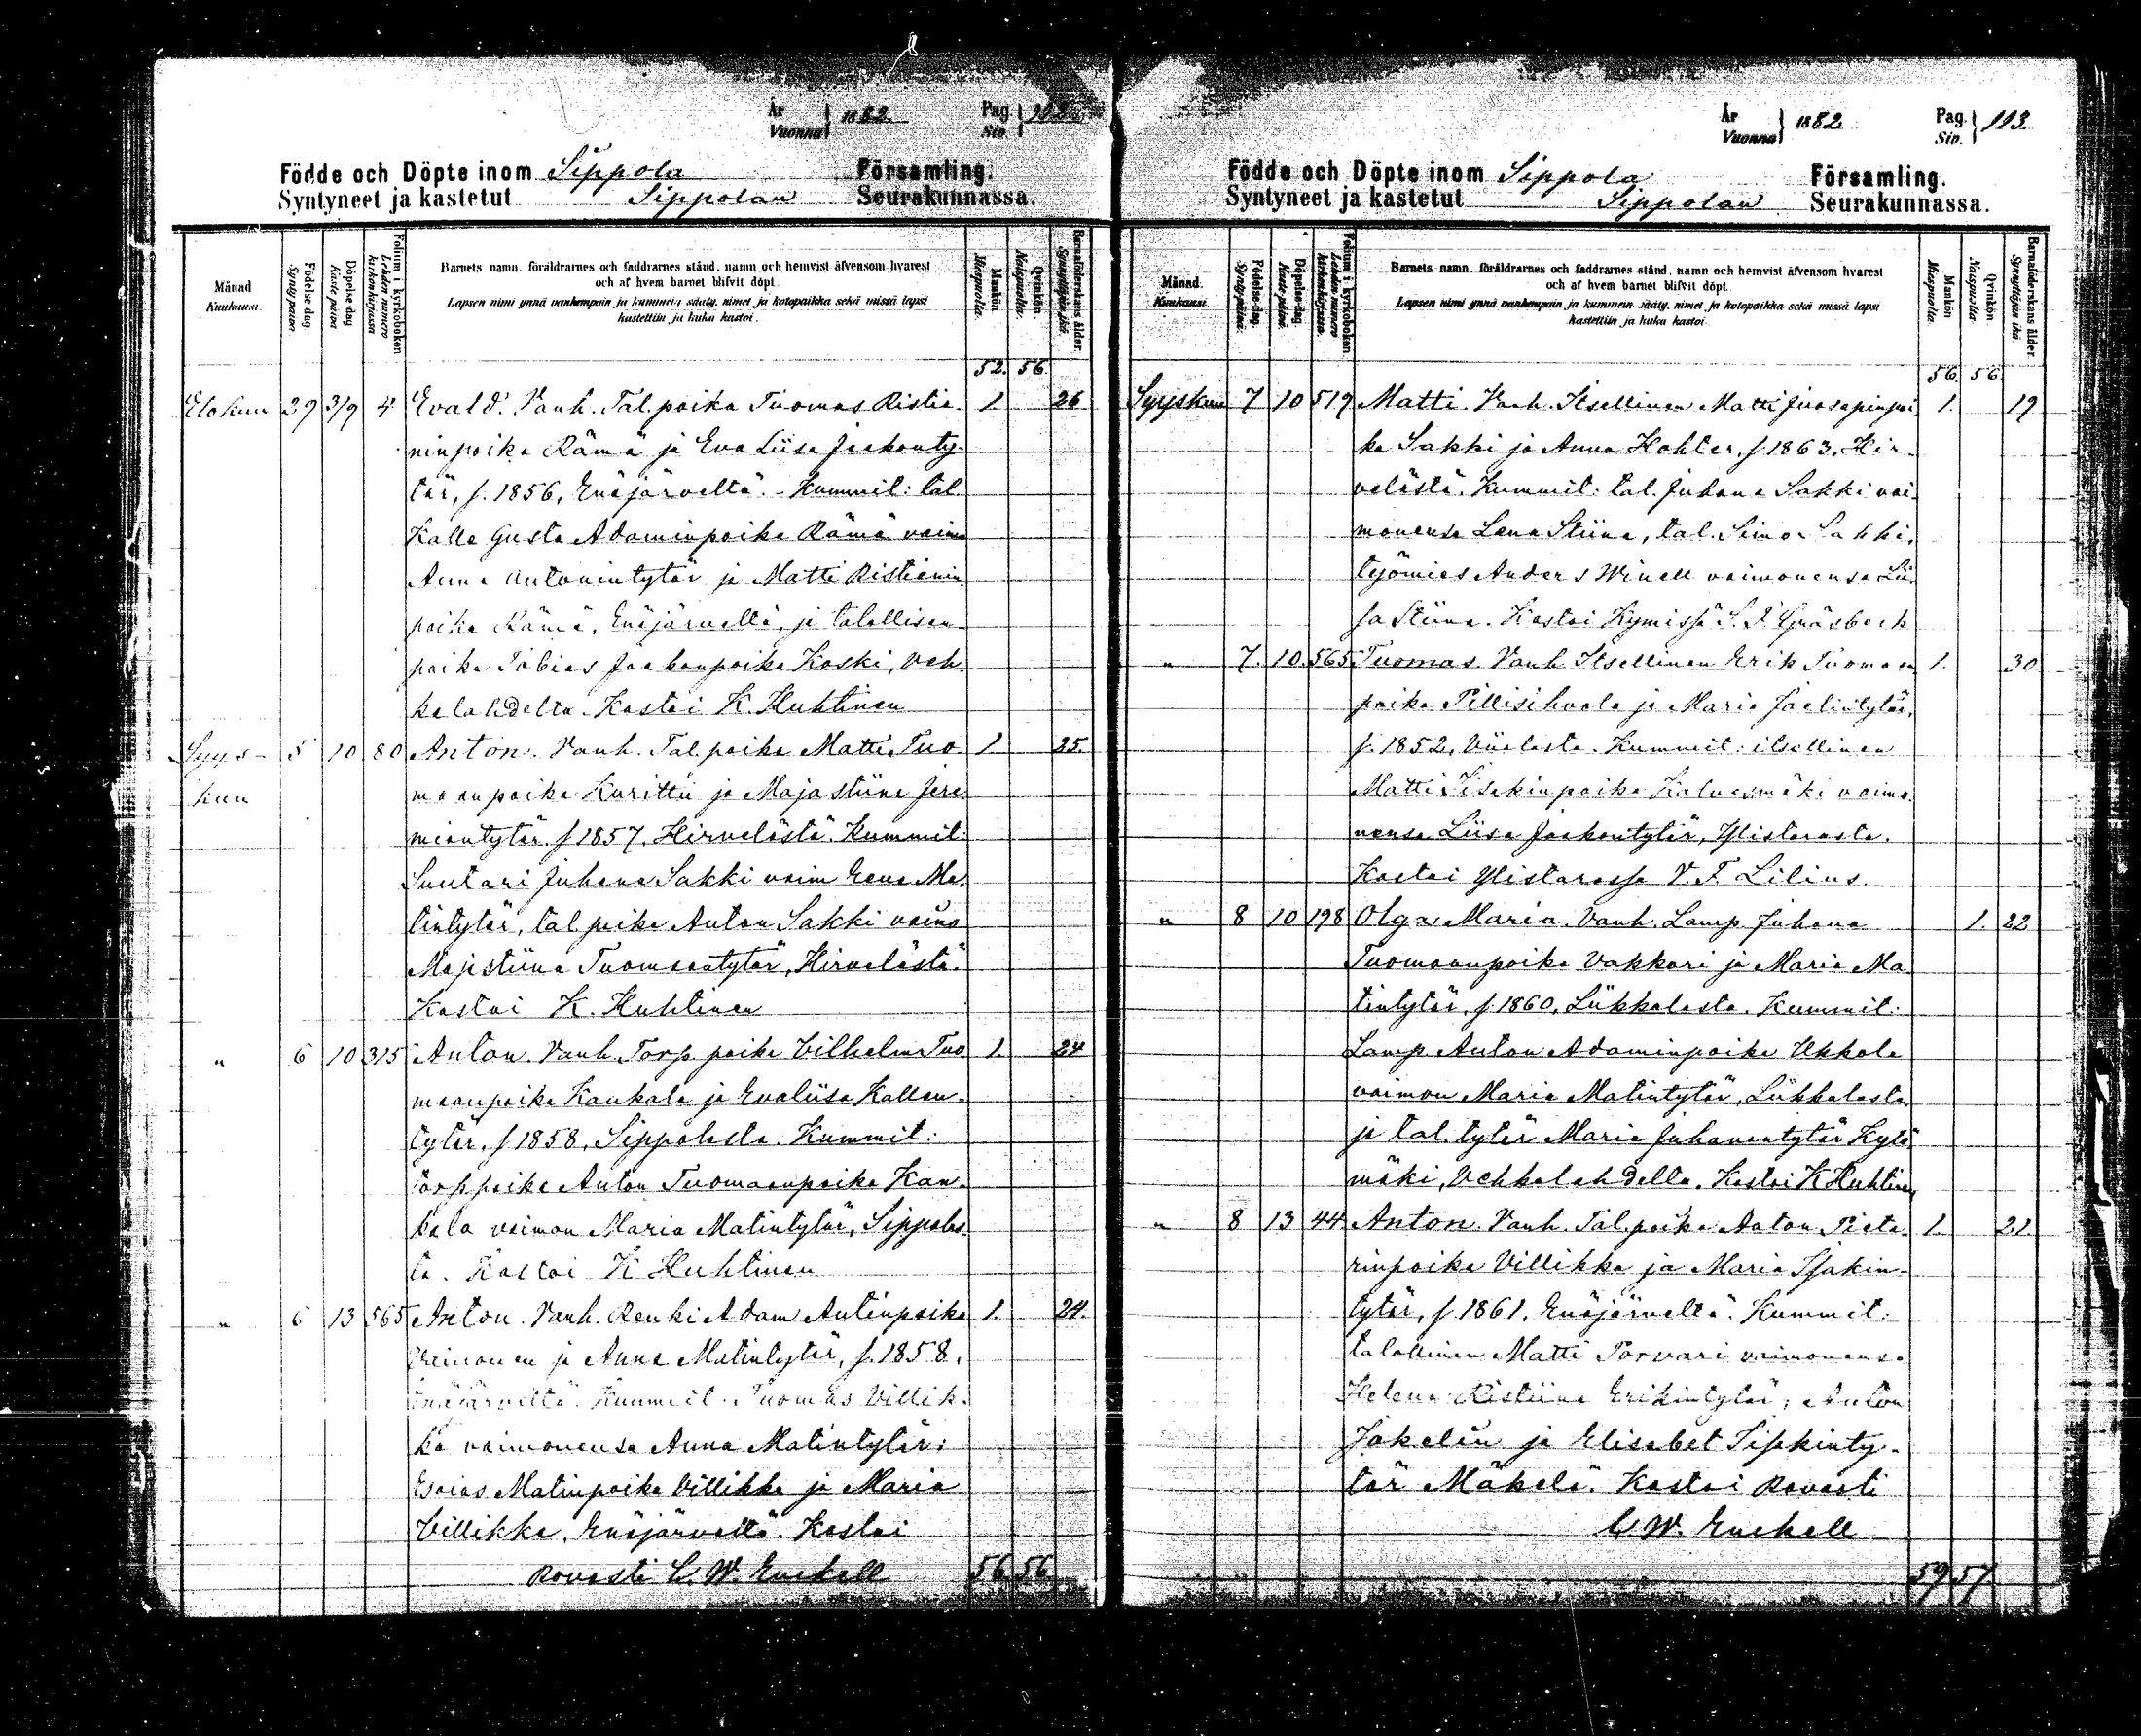 År Vuonna } 1882. Pag. Sio. }
Födde och Döpte inom Sippola Församling.
Syntyneet ja kastetut Sippolan Seurakunnassa.
Månad Kuukausi.
Födelse dag Syntypäivä
Döpelse dag Kaste päivä
Folium i kyrkoboken Lehden numero kirkonkirjassa
Barnets namn, föräldrarnes och faddrarnes stånd, namn och hemvist äfvensom hvarest
och af hvem barnet blifvit döpt.
Lapsen nimi ynnä vanhempain ja kummein sääty, nimet ja kotopaikka sekä missä lapsi
kastettiin ja kuka kastoi.
Mankön Miespuolia.
Qvinkön Naispuolia.
Barnaföderskans ålder. Synnyttäjän ikä
52. 56.
Elokuu 29 3/9 4 Evald. Vanh. Tal. poika Tuomas Ristia- 1. 26
ninpoika Rämä ja Eva Liisa Jaakonty-
tär, s. 1856, Enäjärveltä. Kummit: tal.
Kalle Gusta Adaminpoika Rämä vaimo
Anna Antonintytär ja Matti Ristianin
poika Rämä, Enäjärveltä, ja talollisen
poika Tobias Jaakonpoika Koski, Veh-
kalahdelta. Kastoi K. Huhtinen
Syys- 5 10 80 Anton. Vanh. Tal. poika Matti Tuo- 1. 25.
kuu maanpoika Kurittu ja Maja Stiina Jere-
miantytär s 1857. Hirvelästä. Kummit:
Suutari Juhana Sakki vaim Eeva Ma-
tintytär, tal. poika Anton Sakki vaimo
Majstiina Tuomaantytär, Hirvelästä.
Kastoi K. Huhtinen
" 6 10 315 Anton. Vanh. Torp. poika Vilhelm Tuo 1. 24
maanpoika Kaukala ja Evaliisa Kallen-
tytär, s 1858, Sippolasta. Kummit:
Torp poika Anton Tuomaanpoika Kau-
kala vaimon Maria Matintytär, Sippolas-
ta. Kastoi K Huhtinen
" 6 13 565 Anton. Vanh. Renki Adam Antinpoika 1. 24.
Vainonen ja Anna Matintytär, s. 1858.
Enäjärveltä. Kummit. Tuomas Villik-
ka vaimonensa Anna Matintytär;
Esaias Matinpoika Villikka ja Maria
Villikka, Enäjärveltä. Kastoi
Rovasti C. W. Enckell 56 56
År Vuonna } 1882. Pag. Siv. } 113.
Födde och Döpte inom Sippola Församling.
Syntyneet ja kastetut Sippolan Seurakunnassa.
Månad. Kuukausi.
Födelse-dag. Syntypäivä.
Döpelse-dag. Kaste-päivä.
Folium i kyrkoboken Lehden numero kirkonkirjassa.
Barnets namn, föräldrarnes och faddrarnes stånd, namn och hemvist äfvensom hvarest
och af hvem barnet blifvit döpt.
Lapsen nimi ynnä vanhempain ja kummein sääty, nimet ja kotopaikka sekä missä lapsi
kastettiin ja kuka kastoi.
Mankön Miespuolia
Qvinkön Naispuolia
Barnaföderskans ålder. Synnyttäjän ikä
56. 56.
Syyskuu 7 10 519 Matti. Vanh. Itsellinen Matti Juosepinpoi 1. 19
ka Sakki ja Anna Kohter, s 1863, Hir-
velästä. Kummit: tal. Juhana Sakki vai
monensa Lena Stiina, tal. Simo Sakki,
työmies Anders Winell vaimonensa Lii-
sa Stiina. Kastoi Kymissä S. F. Gräsbeck
" 7. 10. 565 Tuomas. Vanh. Itsellinen Erik Tuomaan 1. 30
poika Pillisihvola ja Maria Joelintytär,
s. 1852, Vialasta. Kummit: itsellinen
Matti Iisakinpoika vaimo-
nensa Liisa Jaakontytär, Ylistarosta.
Kastoi Ylistarossa V. F. Lilius.
" 8 10 198 Olga Maria. Vanh. Lamp. Juhana 1. 22
Tuomaanpoika Vakkari ja Maria Ma-
tintytär, s. 1860, Liikkalasta. Kummit:
Lamp. Anton Adaminpoika Ukkola
vaimon Maria Matintytär, Liikkalasta,
ja tal. tytär Maria Juhanantytär Kytö-
mäki, Vehkalahdella. Kastoi K Huhtinen
" 8 13 44 Anton. Vanh. Tal. poika Anton Pieta- 1. 21.
rinpoika Villikka ja Maria Isakin-
tytär, s. 1861, Enäjärveltä. Kummit:
talollinen Matti Torvari vaimonensa
Helena Ristiina Erikintytär; Anton
Jakelin ja Elisabet Sipkinty-
tär Mäkelä. Kastoi Rovasti
C W. Enckell
59 57